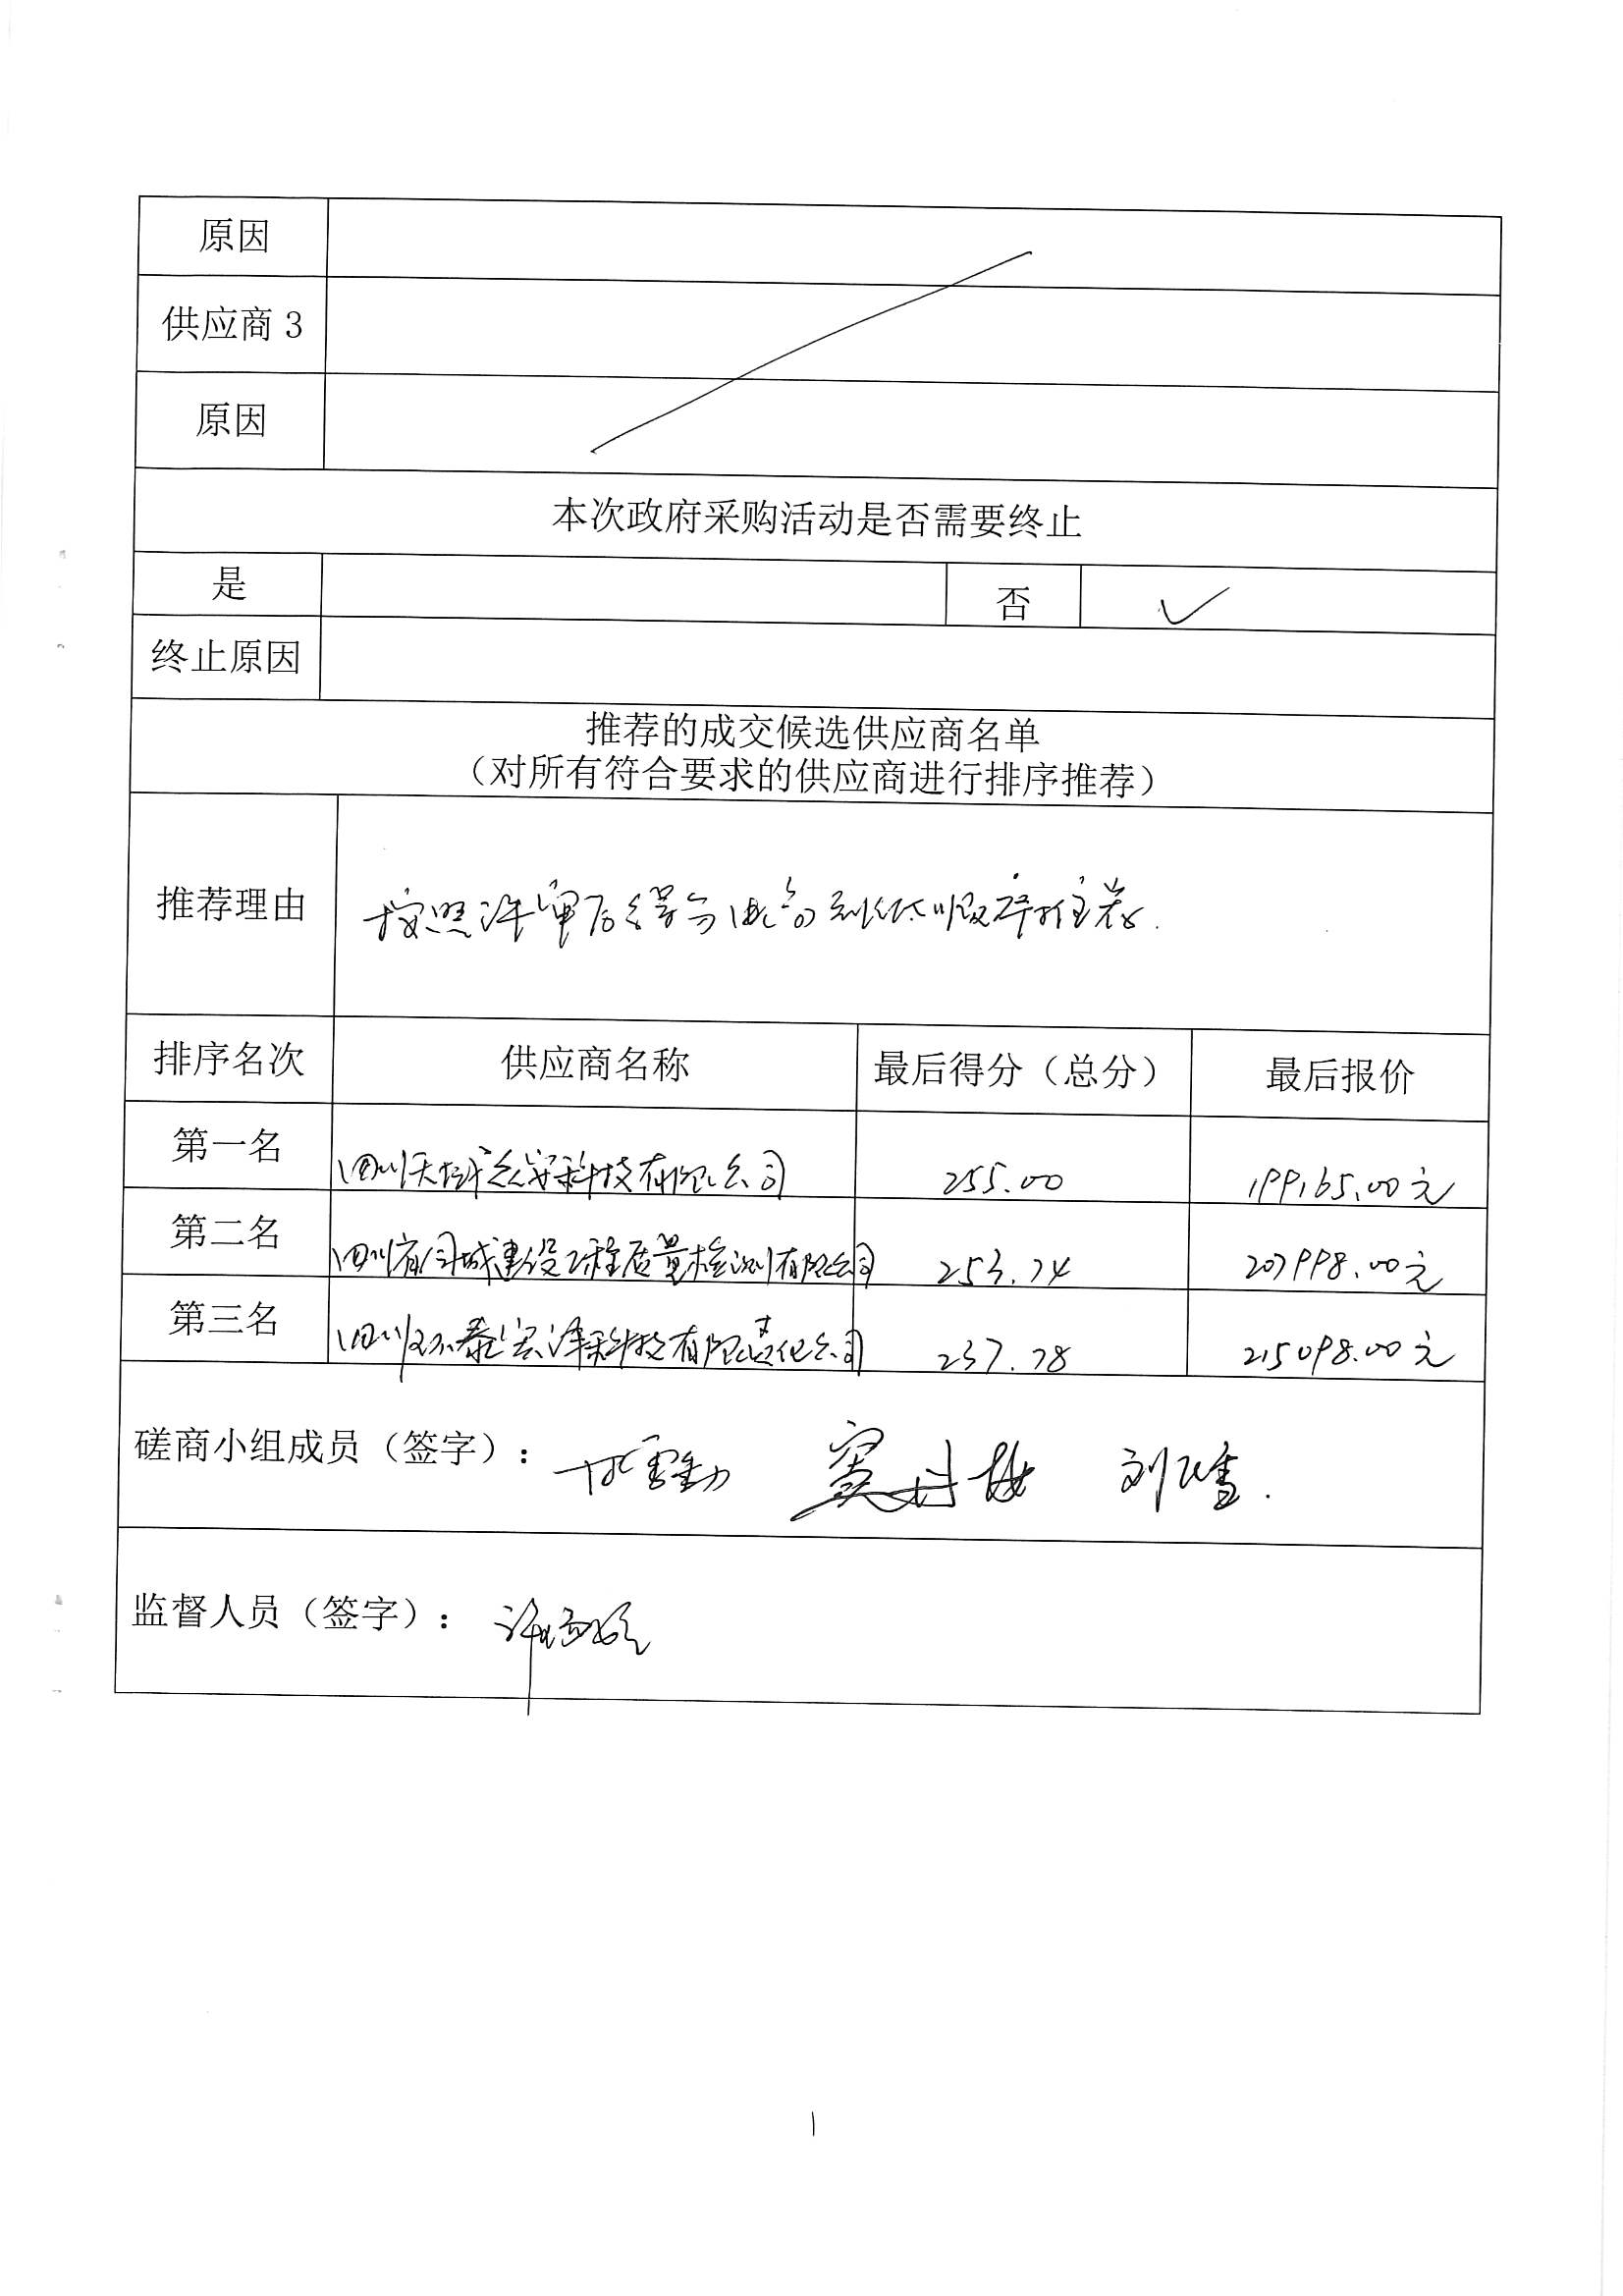 原因
供应商 3
原因
本次政府采购活动是否需要终止
是 否 ✓
终止原因
推荐的成交候选供应商名单
（对所有符合要求的供应商进行排序推荐）
推荐理由 按照评审后得分由高到低顺序推荐.
排序名次 供应商名称 最后得分（总分） 最后报价
第一名 四川天域众安科技有限公司 255.00 199165.00元
第二名 四川省同城建设工程质量检测有限公司 253.74 207998.00元
第三名 四川 泰宏泽科技有限责任公司 237.78 215098.00元
磋商小组成员（签字）： 窦丹梅 刘雪.
监督人员（签字）：
1